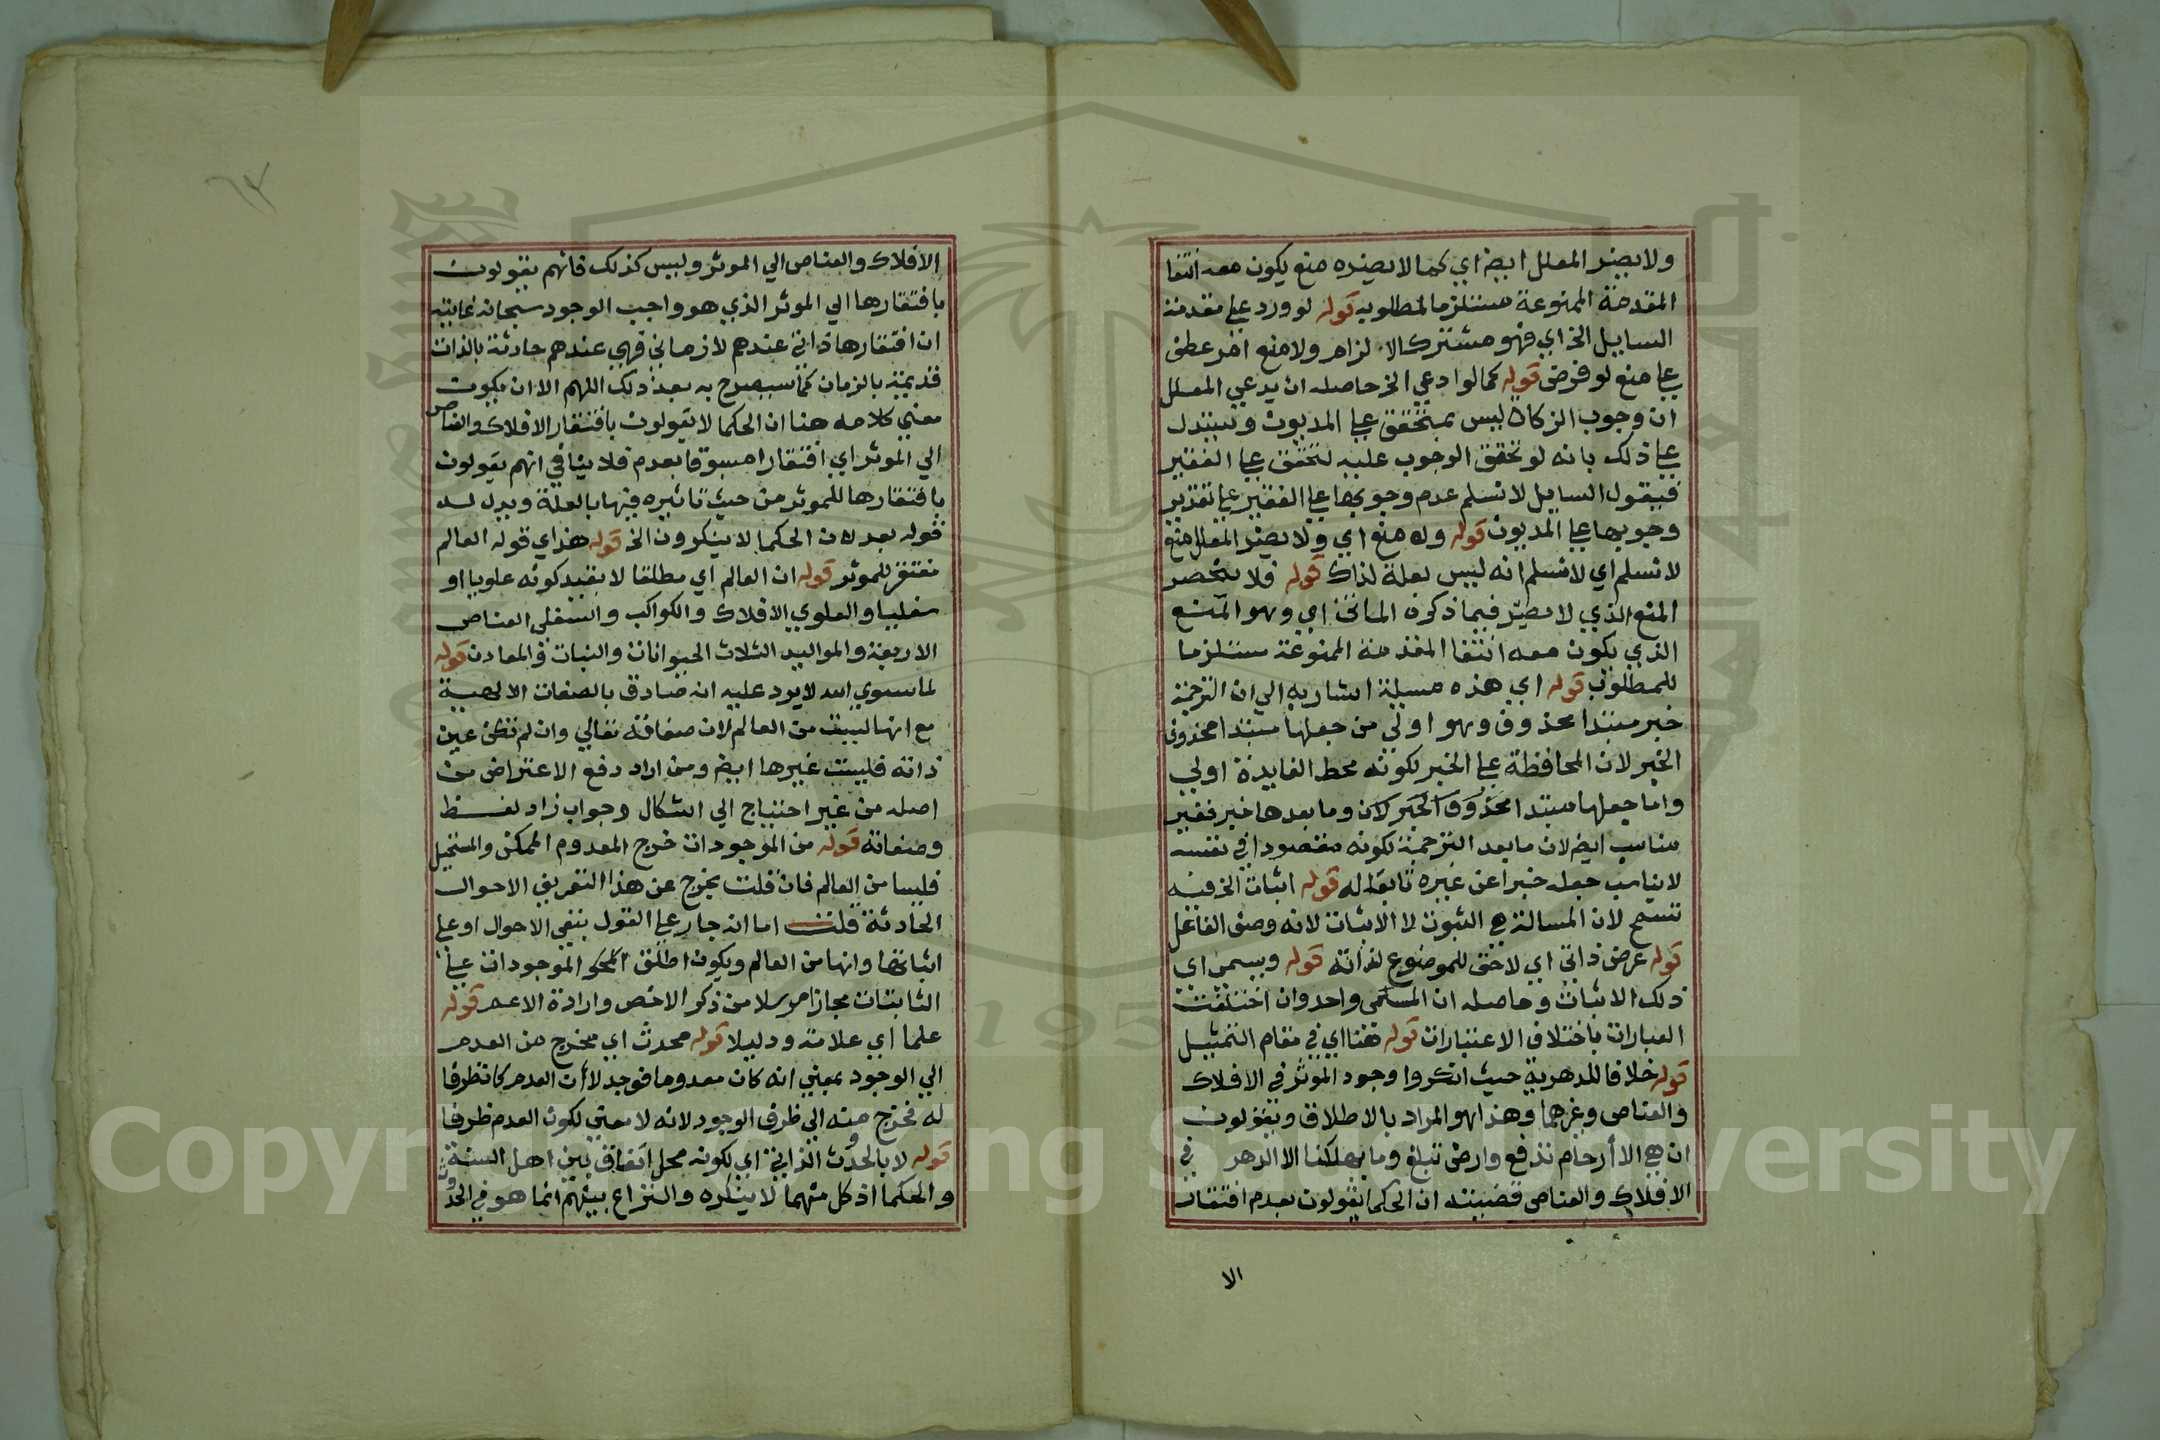 ولا يضر المعلل ايضا اي كما لا يضره منع يكون معه انتفا
المقدمة الممنوعة مستلزما لمطلوبه قوله لو ورد علي مقدمة
السايل الخ اي فهو مشترك الالزام ولا منع اخر عطف
علي منع لو فرض قوله كما لو ادعي الخ حاصله ان يدعي المعلل
ان وجوب الزكاة ليس بمتحقق علي المديون ويستدل
علي ذلك بانه لو تحقق الوجوب عليه لتحقق علي الفقير
فيقول السايل لا نسلم عدم وجوبها علي الفقير علي تقدير
وجوبها علي المديون قوله وله منع اي ولا يضر المعلل منع
لا نسلم اي لا نسلم انه ليس بعلة لذاك قوله فلا ينحصر
المنع الذي لا يضر فيما ذكره الماتن اي وهو المنع
الذي يكون معه انتفا المقدمة الممنوعة مستلزما
للمطلوب قوله اي هذه مسيلة اشار به الي ان الترجمة
خبر مبتدا محذوف وهو اولي من جعلها مبتدا محذوف
الخبر لان المحافظة علي الخبر لكونه محط الفايدة اولي
واما جعلها مبتدا محذوف الخبر كان وما بعدها خبر فغير
مناسب ايضا لان ما بعد الترجمة لكونه مقصودا في نفسه
لا يناسب جعله خبرا عن غيره تابعا له قوله اثبات الخ فيه
تسمح لان المسالة هي الثبوت لا الاثبات لانه وصف الفاعل
قوله عرض ذاتي اي لاحق للموضوع لذاته قوله ويسمي اي
ذلك الاثبات وحاصله ان المسمي واحد وان اختلفت
العبارات باختلاف الاعتبارات قوله هنا اي في مقام التمثيل
قوله خلافا للدهرية حيث انكروا وجود الموثر في الافلاك
والعناصر وغيرهما وهذا هو المراد بالاطلاق ويقولون
ان هي الا أرحام تدفع وارض تبلع وما يهلكنا الا الدهر في
الافلاك والعناصر قضيته ان الحكما يقولون بعدم افتقار
الا
الافلاك والعناصر الي الموثر وليس كذلك فانهم يقولون
بافتقارها الي الموثر الذي هو واجب الوجود سبحانه غايته
ان افتقارها ذاتي عندهم لا زماني فهي عندهم حادثة بالذات
قديمة بالزمان كما سيصرح به بعد ذلك اللهم الا ان يكون
معني كلامه هنا ان الحكما لا يقولون بافتقار الافلاك والعناصر
الي الموثر اي افتقارا مسبوقا بعدم فلا ينافي انهم يقولون
بافتقارها للموثر من حيث تاثيره فيها بالعلة ويدل له
قوله بعد لان الحكما لا ينكرون الخ قوله هذا اي قوله العالم
مفتقر للموثر قوله ان العالم اي مطلقا لا بقيد كونه علويا او
سفليا والعلوي الافلاك والكواكب والسفلي العناصر
الاربعة والمواليد الثلاث الحيوانات والنبات والمعادن قوله
لما سوي الله لا يرد عليه انه صادق بالصفات الالهية
مع انها ليست من العالم لان صفاته تعالي وان لم تكن عين
ذاته فليست غيرها ايضا ومن اراد دفع الاعتراض من
اصله من غير احتياج الي اشكال وجواب زاد لفظ
وصفاته قوله من الموجودات خرج المعدوم الممكن والمستحيل
فليسا من العالم فان قلت يخرج عن هذا التعريف الاحوال
الحادثة قلت اما انه جار علي القول بنفي الاحوال او علي
اثباتها وانها من العالم ويكون اطلق الموجودات علي
الثابتات مجازا مرسلا من ذكر الاخص وارادة الاعم قوله
علما اي علامة ودليلا قوله محدث اي مخرج من العدم
الي الوجود بمعني انه كان معدوما فوجد لا أن العدم كان ظرفا
له فخرج منه الي ظرف الوجود لانه لا معني لكون العدم ظرفا
قوله لا بالحدوث الذاتي اي لكونه محل اتفاق بين اهل السنة
والحكما اذ كل منهما لا ينكره والنزاع بينهم انما هو في الحدوث
Copyright © King Saud University